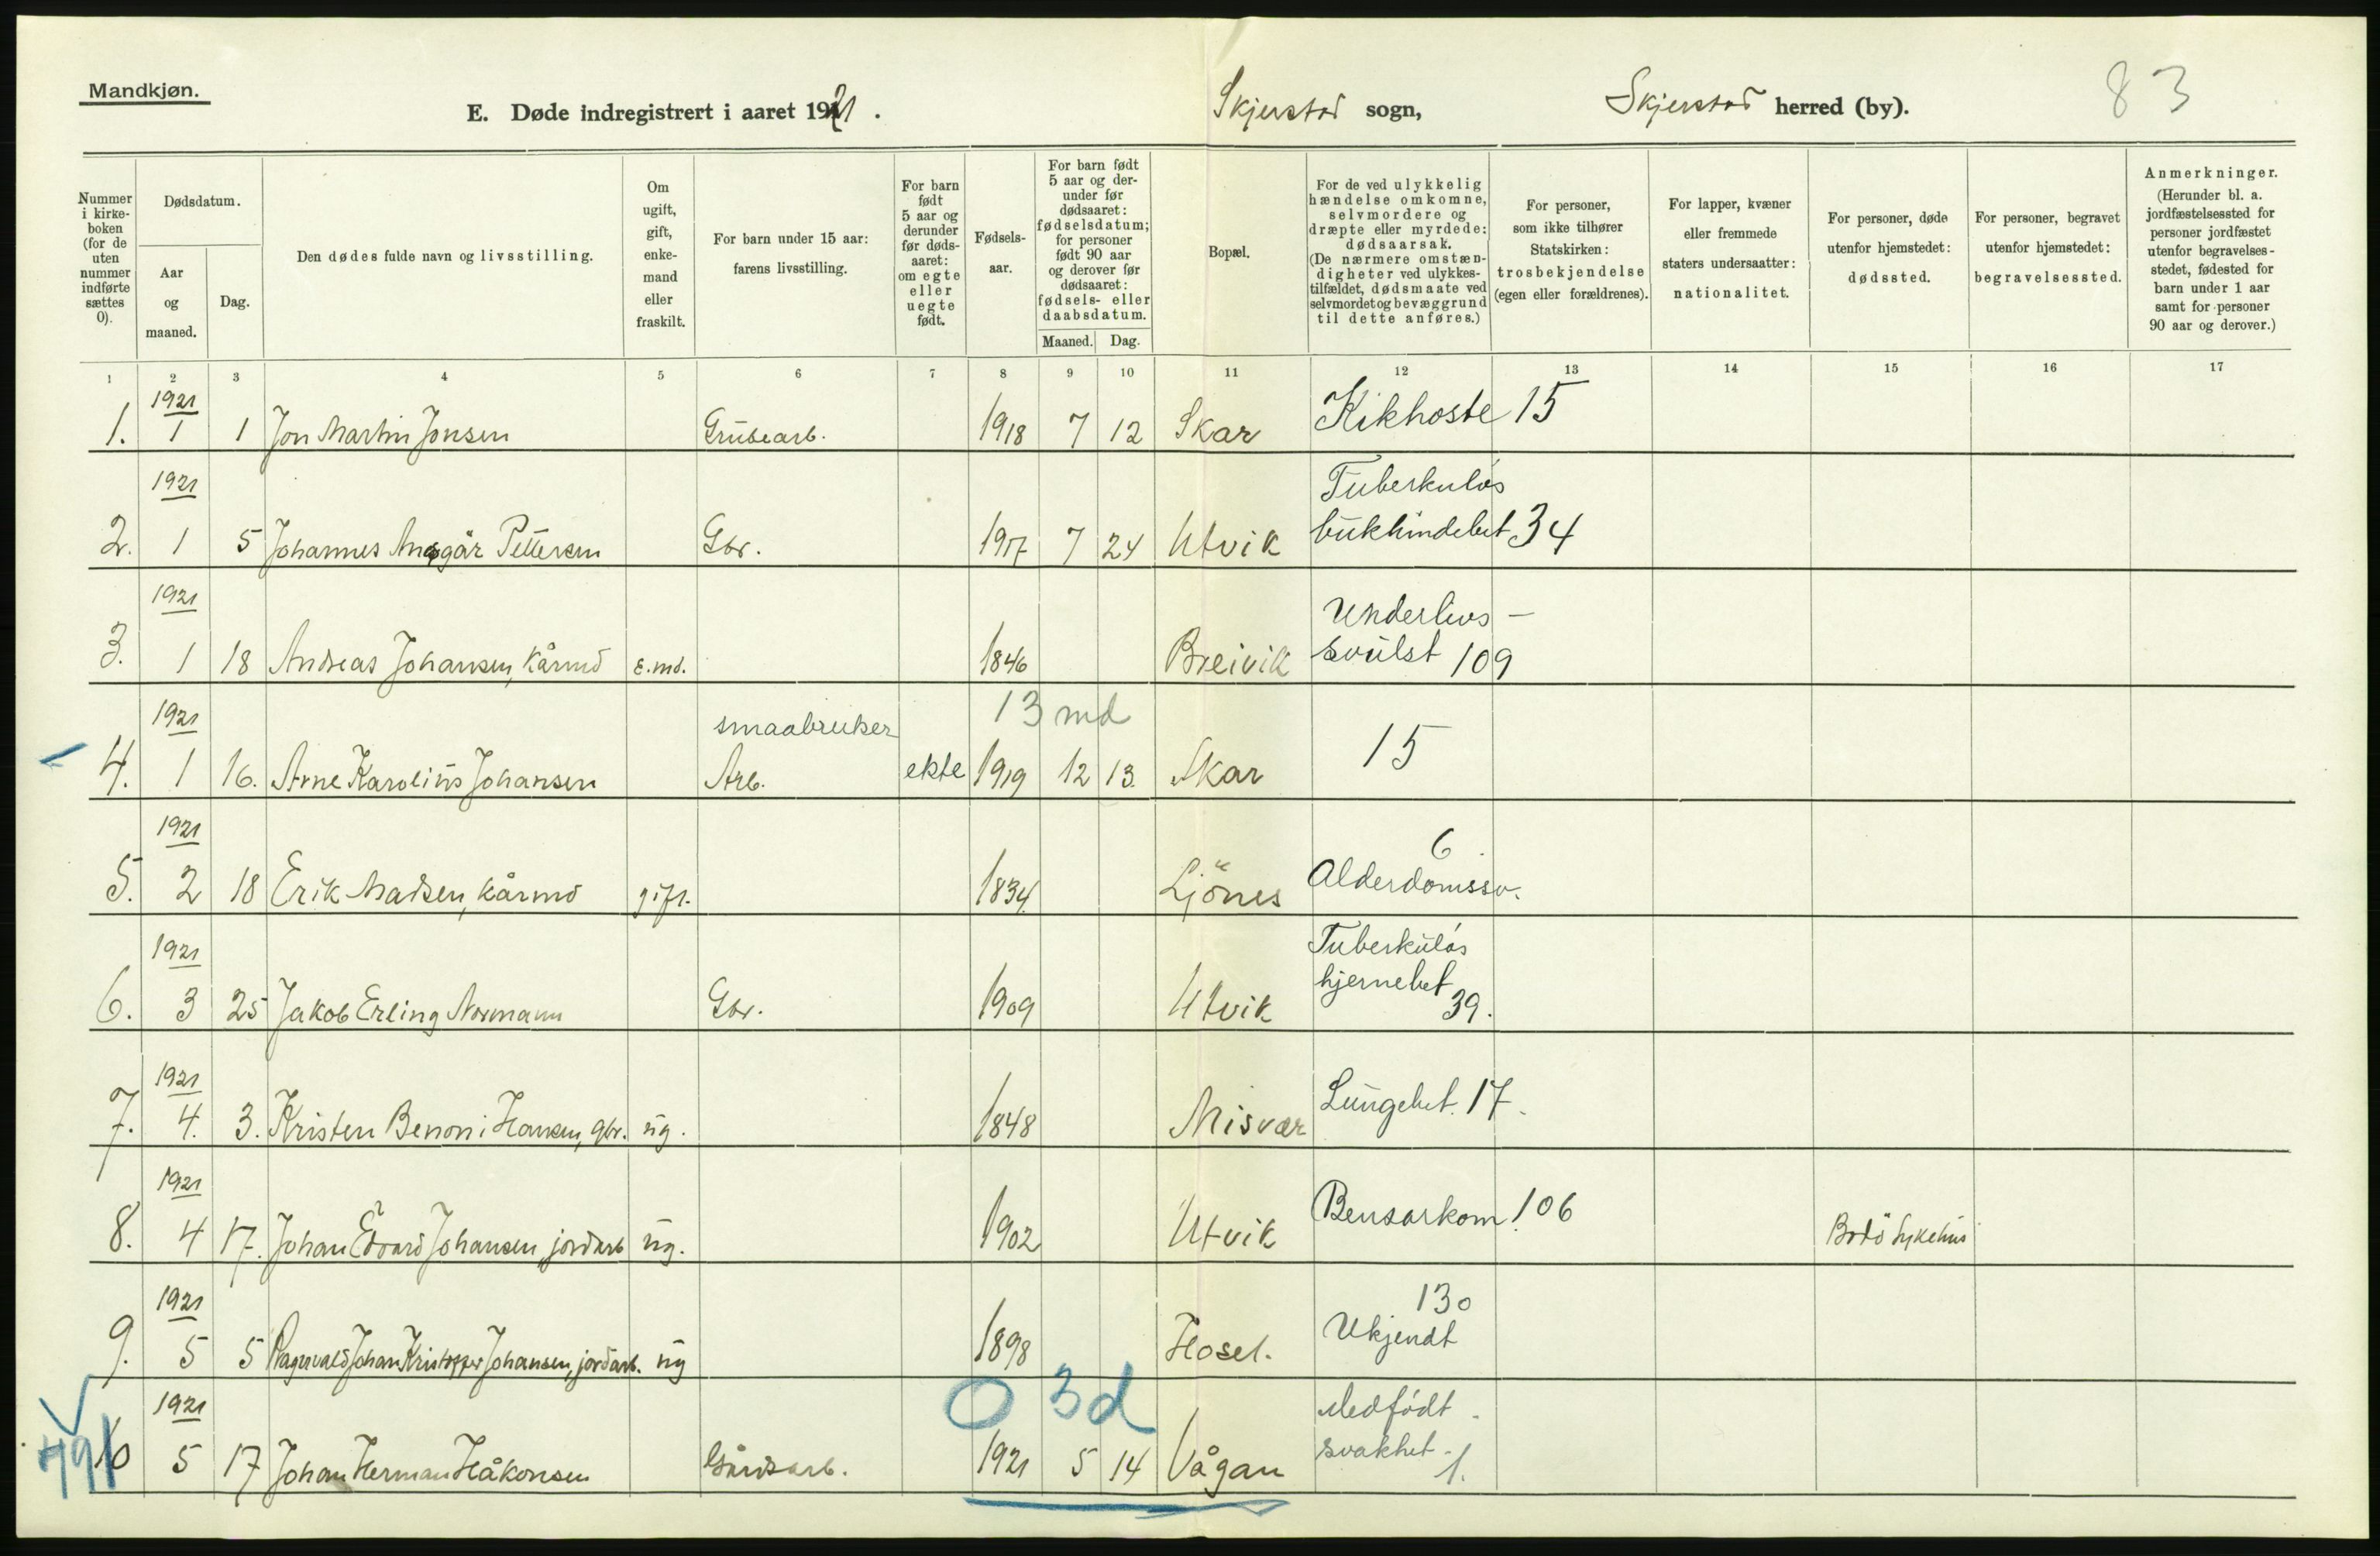 Mandkjøn.
E. Døde indregistrert i aaret 1921.
Skjerstad sogn,
Skjerstad herred (by).
83
Nummer i kirke-boken (for de uten nummer indførte sættes 0).
Dødsdatum.
Aar og maaned.
Dag.
Den dødes fulde navn og livsstilling.
Om ugift, gift, enke-mand eller fraskilt.
For barn under 15 aar: farens livsstilling.
For barn født 5 aar og derunder før døds-aaret: om egte eller uegte født.
Fødsels-aar.
For barn født 5 aar og der-under før dødsaaret: fødselsdatum; for personer født 90 aar og derover før dødsaaret: fødsels- eller daabsdatum.
Maaned. Dag.
Bopæl.
For de ved ulykkelig hændelse omkomne, selvmordere og dræpte eller myrdede: dødsaarsak. (De nærmere omstæn-digheter ved ulykkes-tilfældet, dødsmaate ved selvmordet og bevæggrund til dette anføres.)
For personer, som ikke tilhører Statskirken: trosbekjendelse (egen eller forældrenes).
For lapper, kvæner eller fremmede staters undersaatter: nationalitet.
For personer, døde utenfor hjemstedet: dødssted.
For personer, begravet utenfor hjemstedet: begravelsessted.
Anmerkninger. (Herunder bl. a. jordfæstelsessted for personer jordfæstet utenfor begravelses-stedet, fødested for barn under 1 aar samt for personer 90 aar og derover.)
1 2 3 4 5 6 7 8 9 10 11 12 13 14 15 16 17
1921
1. 1 1 Jon Martin Jonsen Grubearb. 1918 7 12 Skar Kikhoste 15
1921 Tuberkuløs
2. 1 5 Johannes Ansgår Pettersen Gbr. 1917 7 24 Utvik bukhindebet 34
1921 Underlivs-
3. 1 18 Andreas Johansen, kårmd e.md. 1846 Breivik svulst 109
1921 smaabruker 13 md
4. 1 16. Arne Karolius Johansen Arb. ekte 1919 12 13. Skar 15
1921 6
5. 2 18 Erik Madsen, kårmd gift. 1834 Ljönes Alderdomssv.
1921 Tuberkuløs
hjernebet
6. 3 25 Jakob Erling Normann Gbr. 1909 Utvik 39.
1921
7. 4. 3. Kristen Benoni Hansen, gbr. ug. 1848 Misvær Lungebet. 17.
1921
8. 4 17. Johan Edvard Johansen, jordarb ug. 1902 Utvik Bensarkom. 106 Bodö Sykehus
1921 130
9. 5 5 Ragnvald Johan Kristoffer Johansen, jordarb. ug 1898 Hosel. Ukjendt
0 3d
1921 Medfødt
791
10 5 17 Johan Herman Håkonsen Gårdsarb. 1921 5 14 Vågan svakhet. 1.